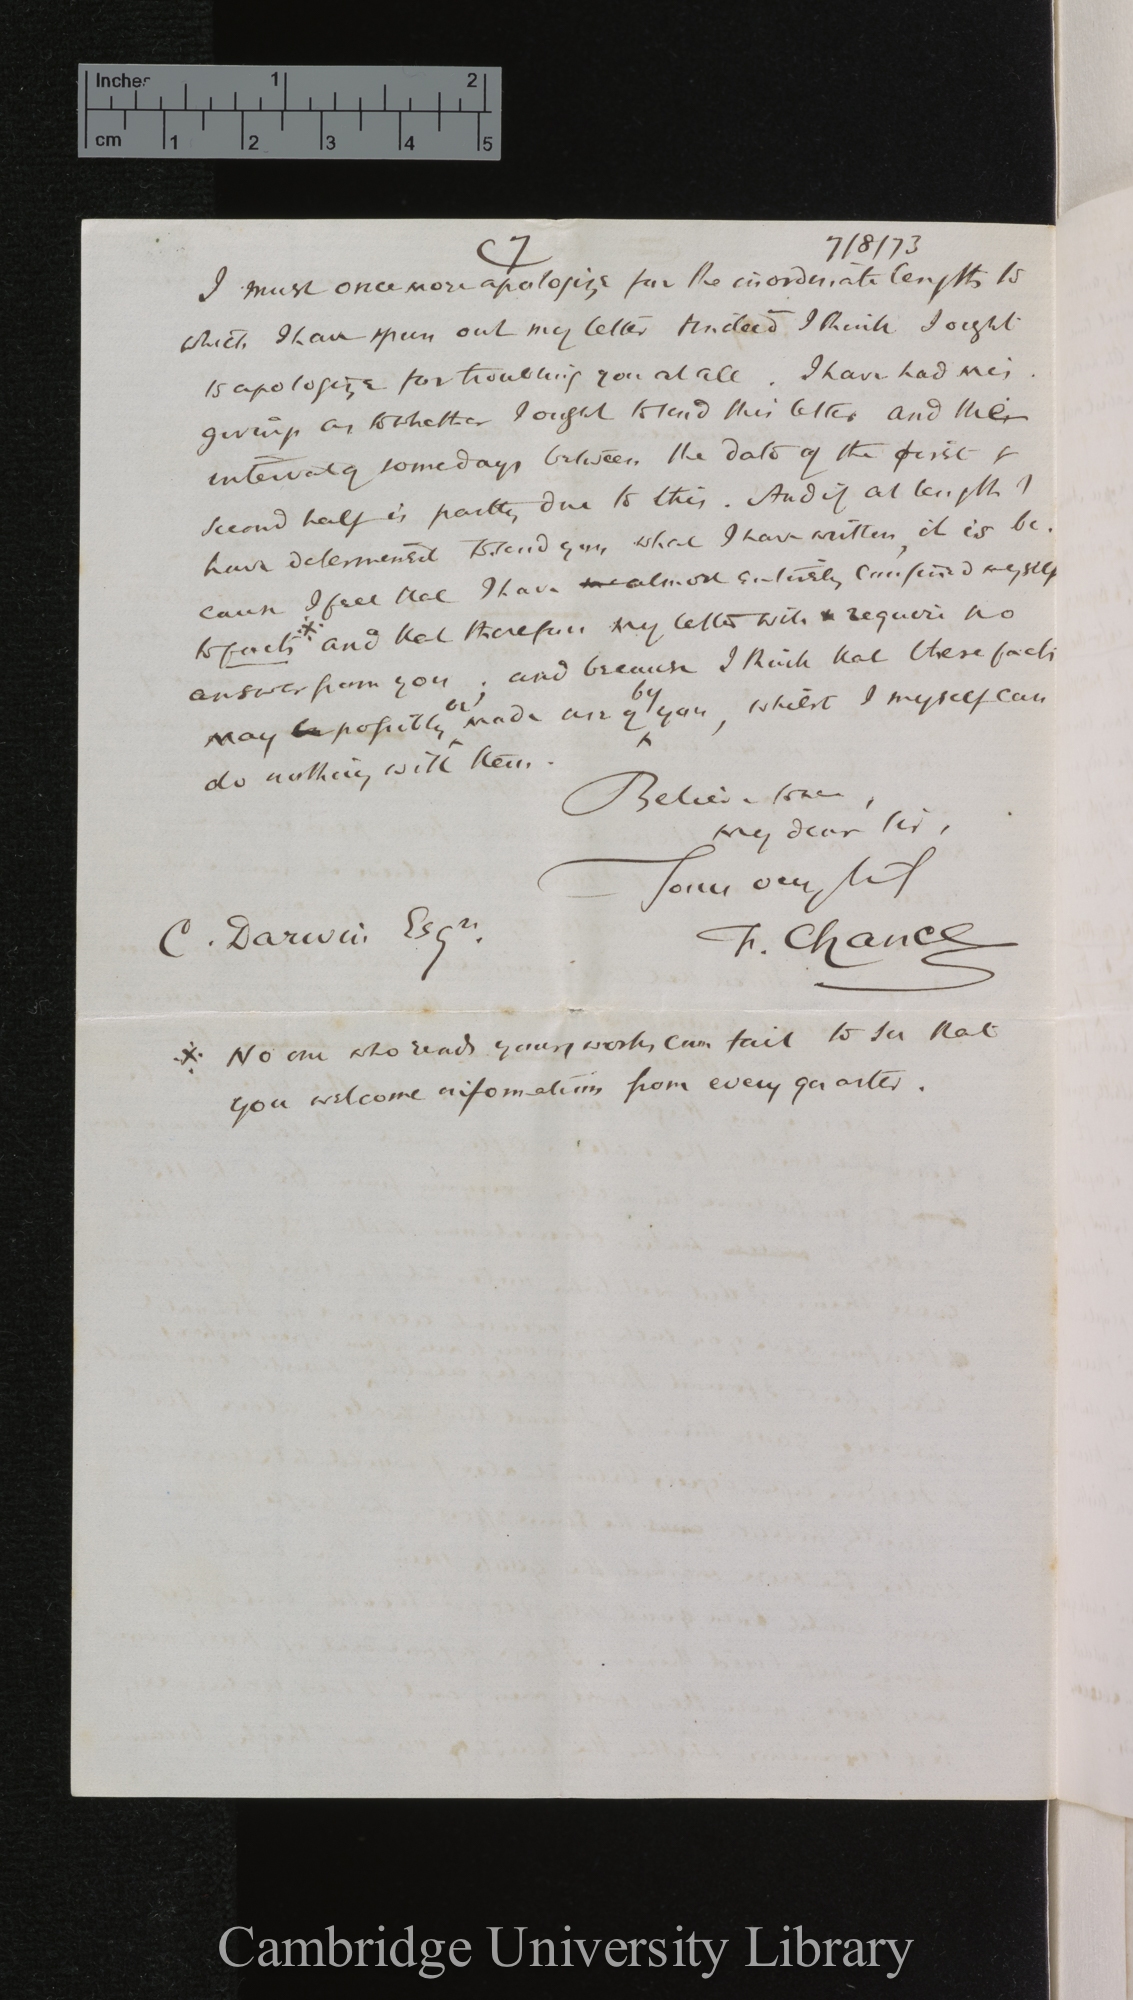 Inches 1 2
cm 1 2 3 4 5
C7 7/8/73
I must once more apologize for the inordinate length to
which I have spun out my letter Indeed I think I ought
to apologize for troubling you at all. I have had mis-
givings as to whether I ought to send this letter and the
interval of some days between the date of the first &
second half is partly due to this. And if at length I
have determined to send you what I have written, it is be-
cause I feel that I have almost entirely confined myself
to facts* and that therefore my letter will require no
answer from you; and because I think that these facts
may possibly be made use of by you, whilst I myself can
do nothing with them.
Believe me,
my dear Sir,
Yours very truly
F. Chance
C. Darwin Esqre.
* No one who reads your works can fail to see that
you welcome information from every quarter.
Cambridge University Library